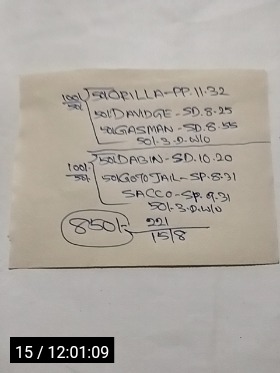 100/- 50/ORILLA-PP.11.32
50/- 50/DAVIDGE-SD.8.25
50/GASMAN-SD.8.55
50/-3.D.W/O
100/- 50/DABIN-SD.10.20
50/- 50/GOTO JAIL-SP.8.31
SACCO-SP.9.31
50/-3.D.W/O
850/- 221
1518
15 / 12:01:09